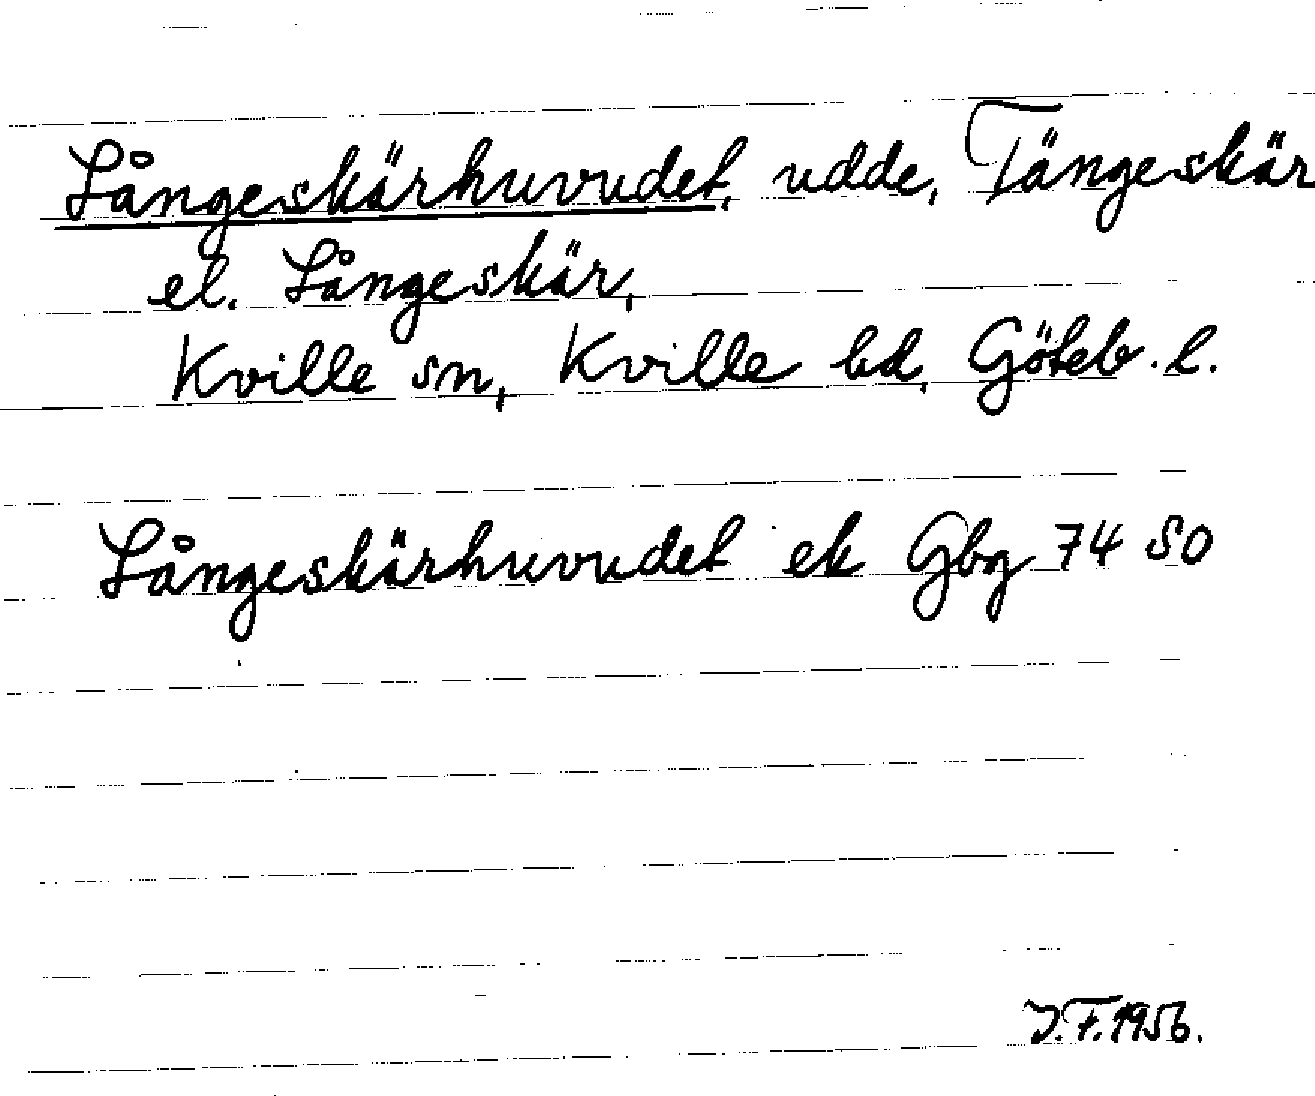 Långeskärhuvudet, udde, Tängeskär
el. Långeskär,
Kville sn, Kville hd, Göteb. l.
Långeskärhuvudet ek Gbg 74 SO
J.F. 1956.